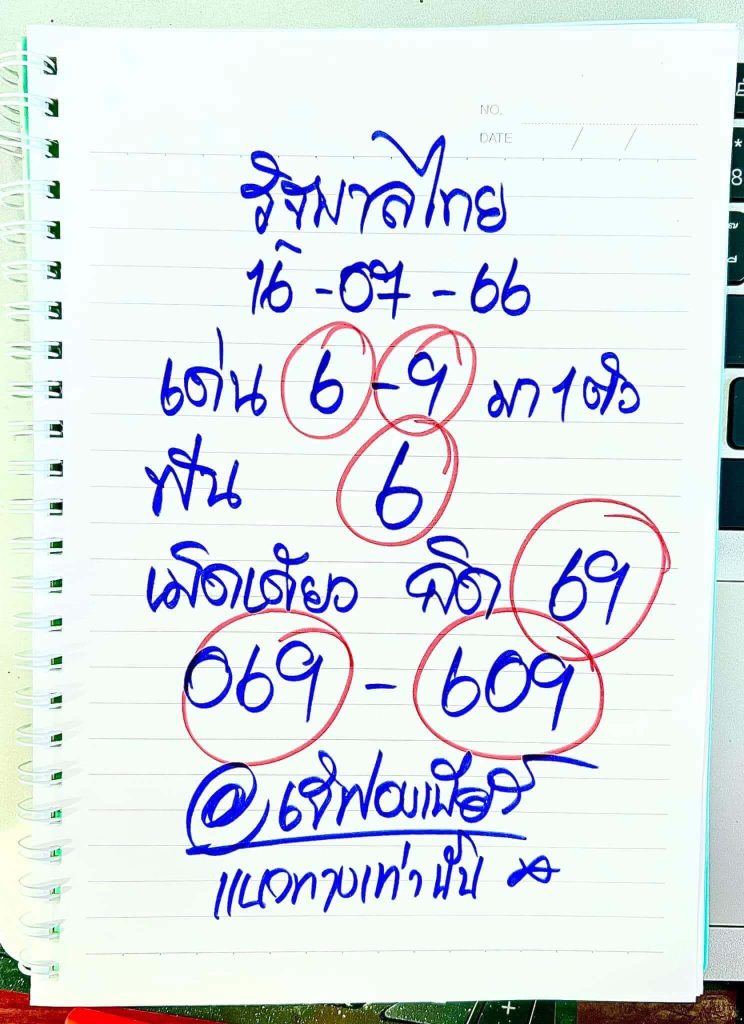 NO.
DATE / /
รัฐบาลไทย
16-07-66
เด่น 6-9 มา 1 ตัว
ฟัน 6
เม็ดเดียว จัด 69
069 - 609
แนวทางเท่านั้น
* 8